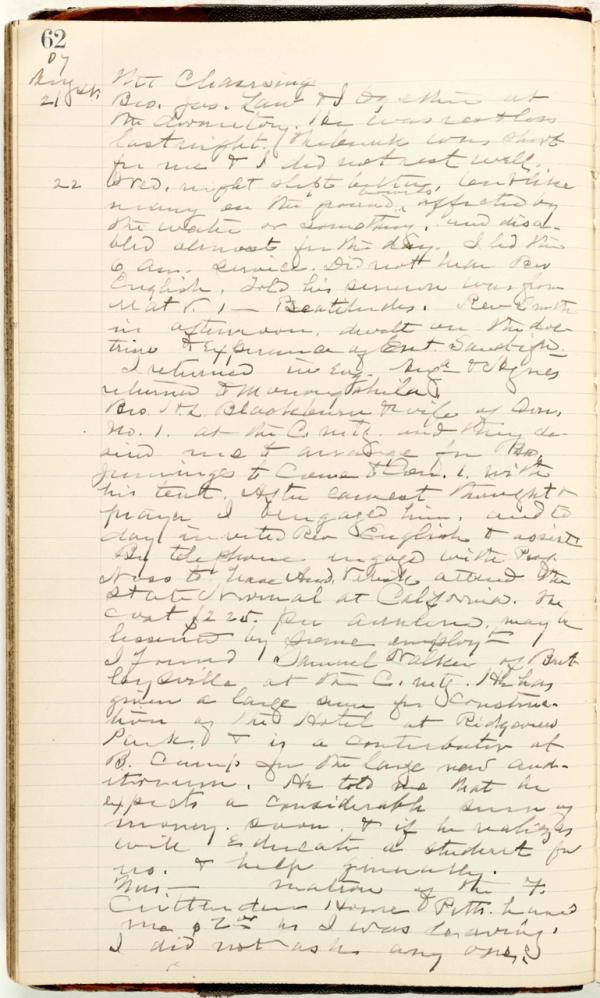 62
07
Aug
21
Bro. Jas. Law & I together at
the dormitory. He was restless
last night. The bunk was short
for me & I did not rest well.
22 Wed. night slept better, but like
many on the ground, bowels affected by
the water or something, and disa-
bled almost for the day. I led the
6 am. service. Did not hear Rev
English. Told his sermon was from
Mat 5. 1 — Beatitudes. Rev Smith
in afternoon. dwelt on the doc-
trine & Experience of Ent. Sanctifn.
I returned in evg. & Agnes
returned to Monongahela.
Bro. H.L. Blackburn & wife of Don.
No. 1. at the C. mtg. and they de-
sired me to arrange for Bro.
Jennings to come to Don. 1. with
his tent. After earnest thought &
prayer I engaged him, and to
day invited Rev English to assist
By telephone engaged with Prof
Noss to have attend the
State Normal at California. The
cost $225. per annum, may be
lessened by some employt
I found Samuel Walker of Bent
leysville at the C. mtg. He has
given a large sum for construc-
tion of the Hotel at Ridgeview
Park. & is a contributor at
B. Camp for the large new aud-
itorium. He told me that he
expects a considerable sum of
money. soon. & if he realizes
will Educate a student for
us. & help generally.
Mrs. — matron of the F.
Crittenden Home Pitts. handed
me $2 as I was leaving.
I did not ask any one.